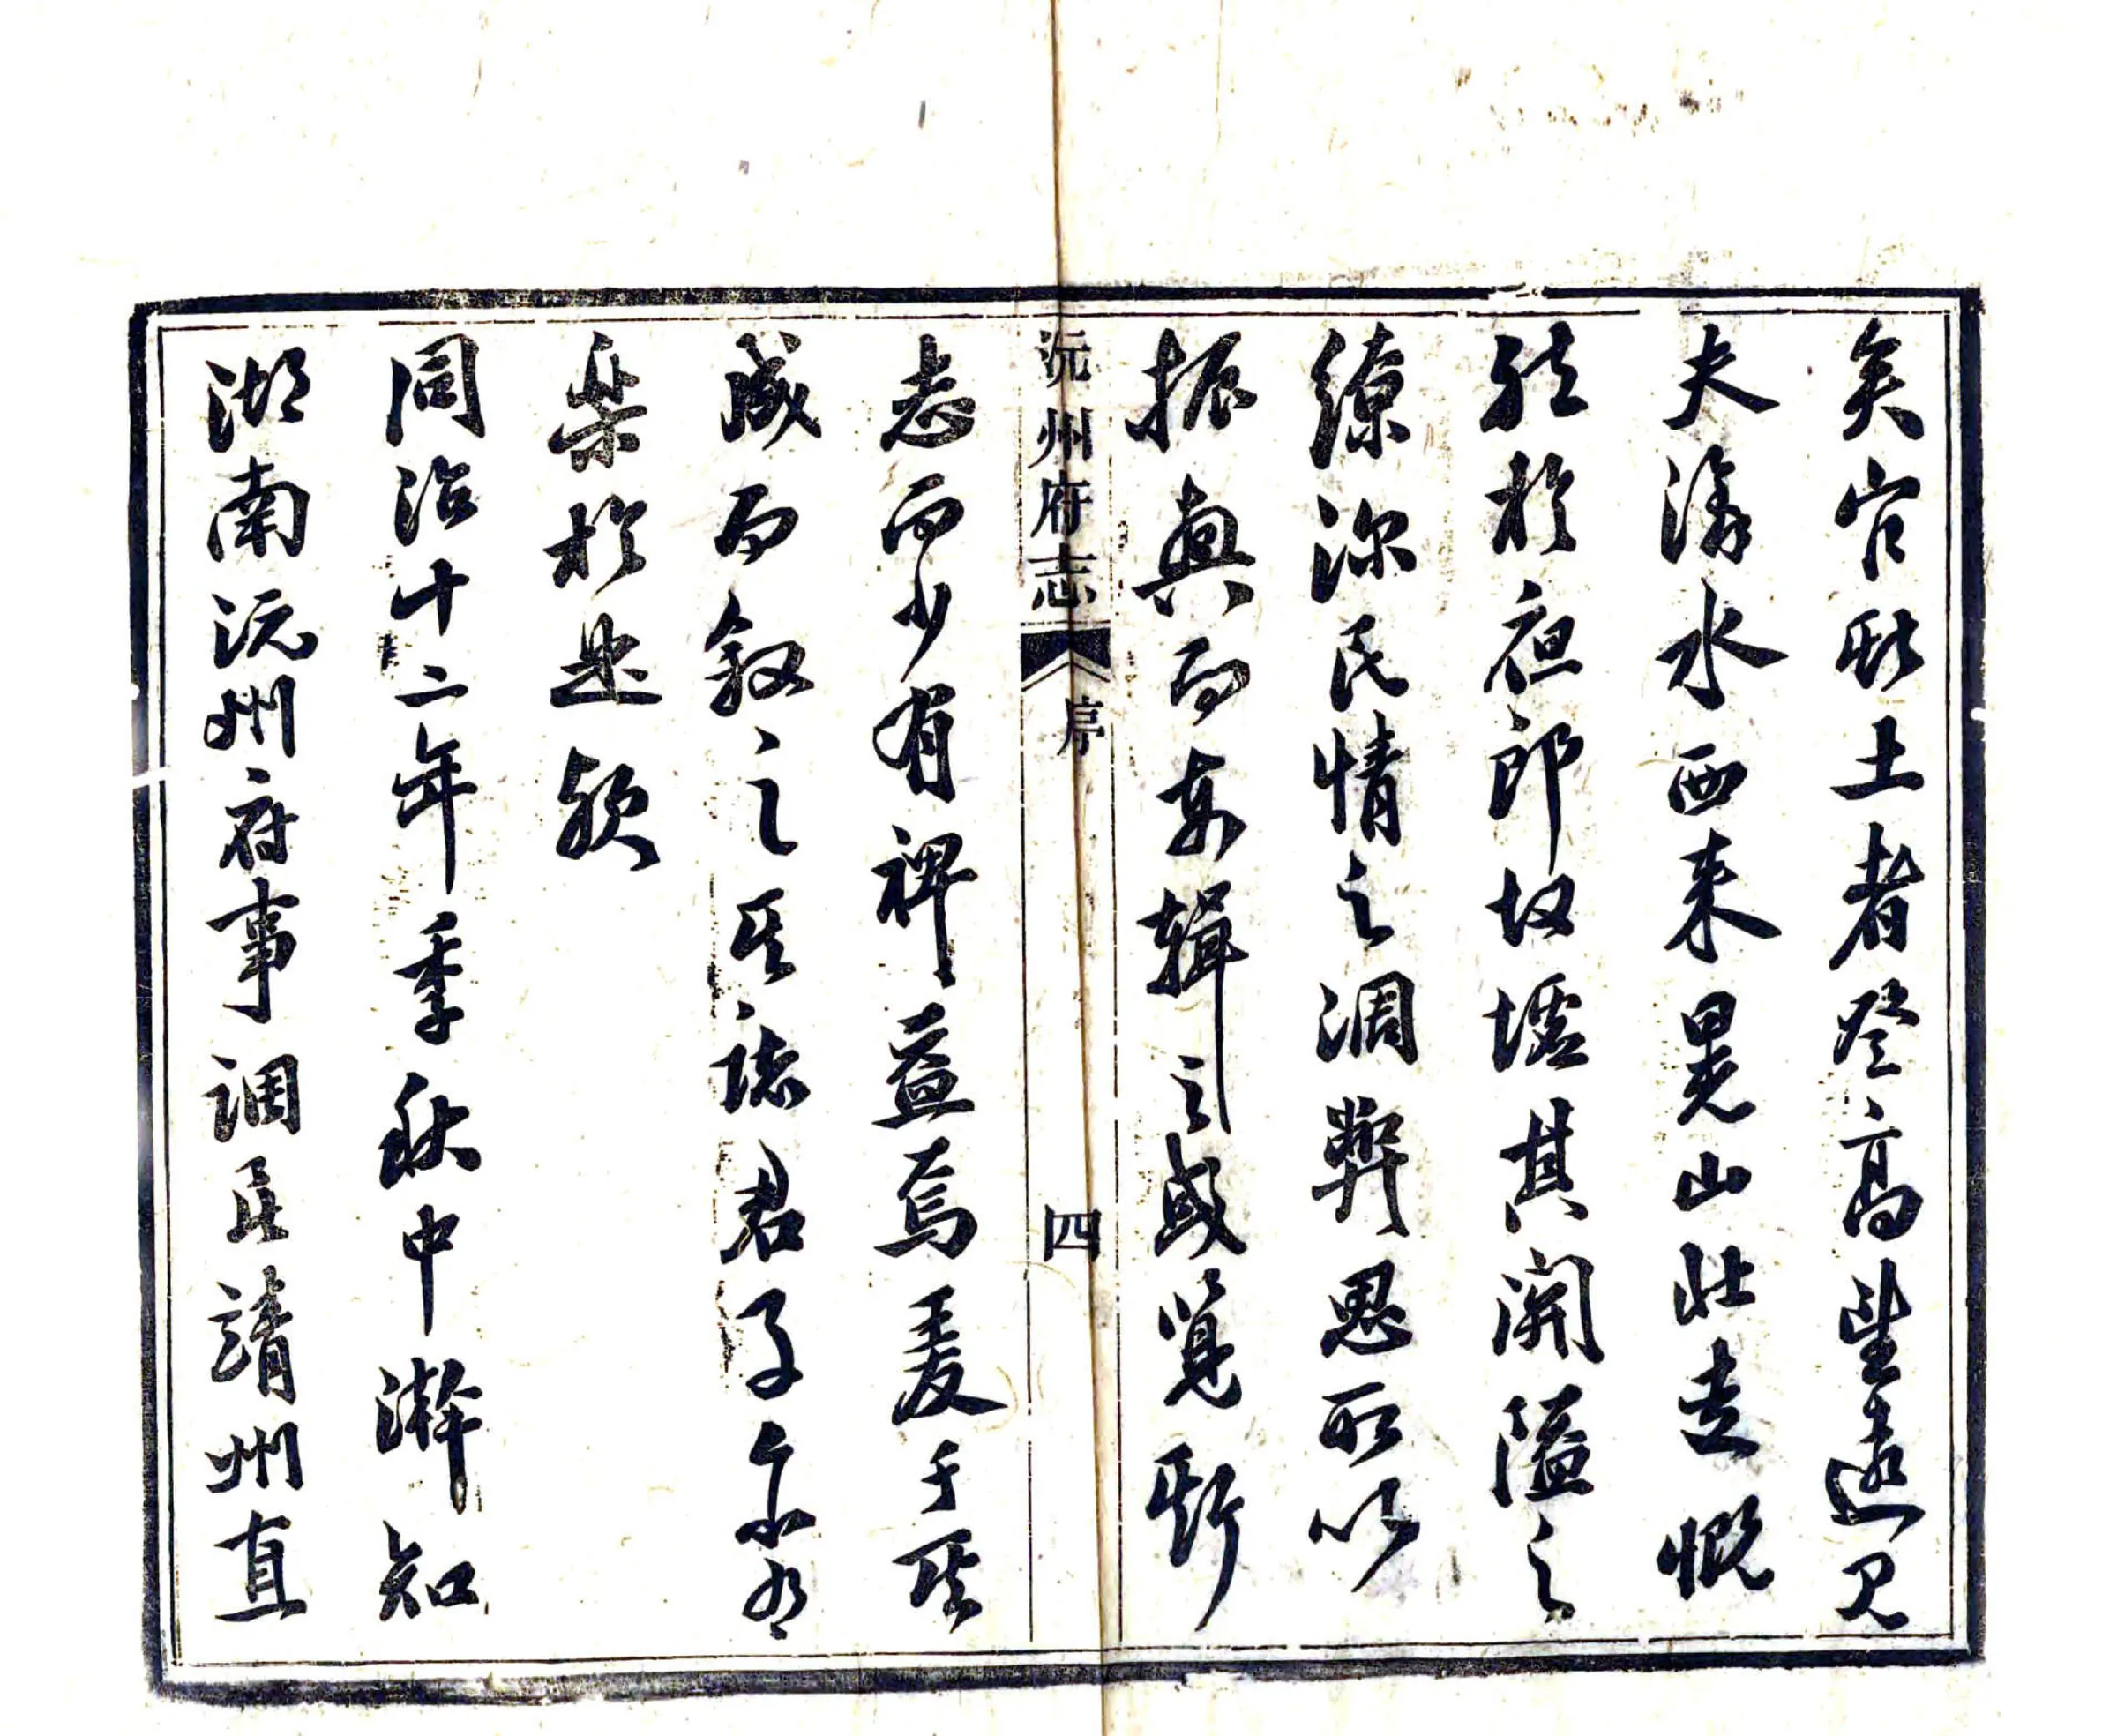 矣官此土者登高望遠見
夫潕水西來晃山北走慨
然於夜郎故墟其關隘之
繚深民情之凋弊思所以
振興而安輯之或覽斯
沅州府志 序 四
志而少有裨益焉爰于其
成而叙之其諸君子亦有
樂於是歟
同治十二年季秋中澣知
湖南沅州府事調署靖州直